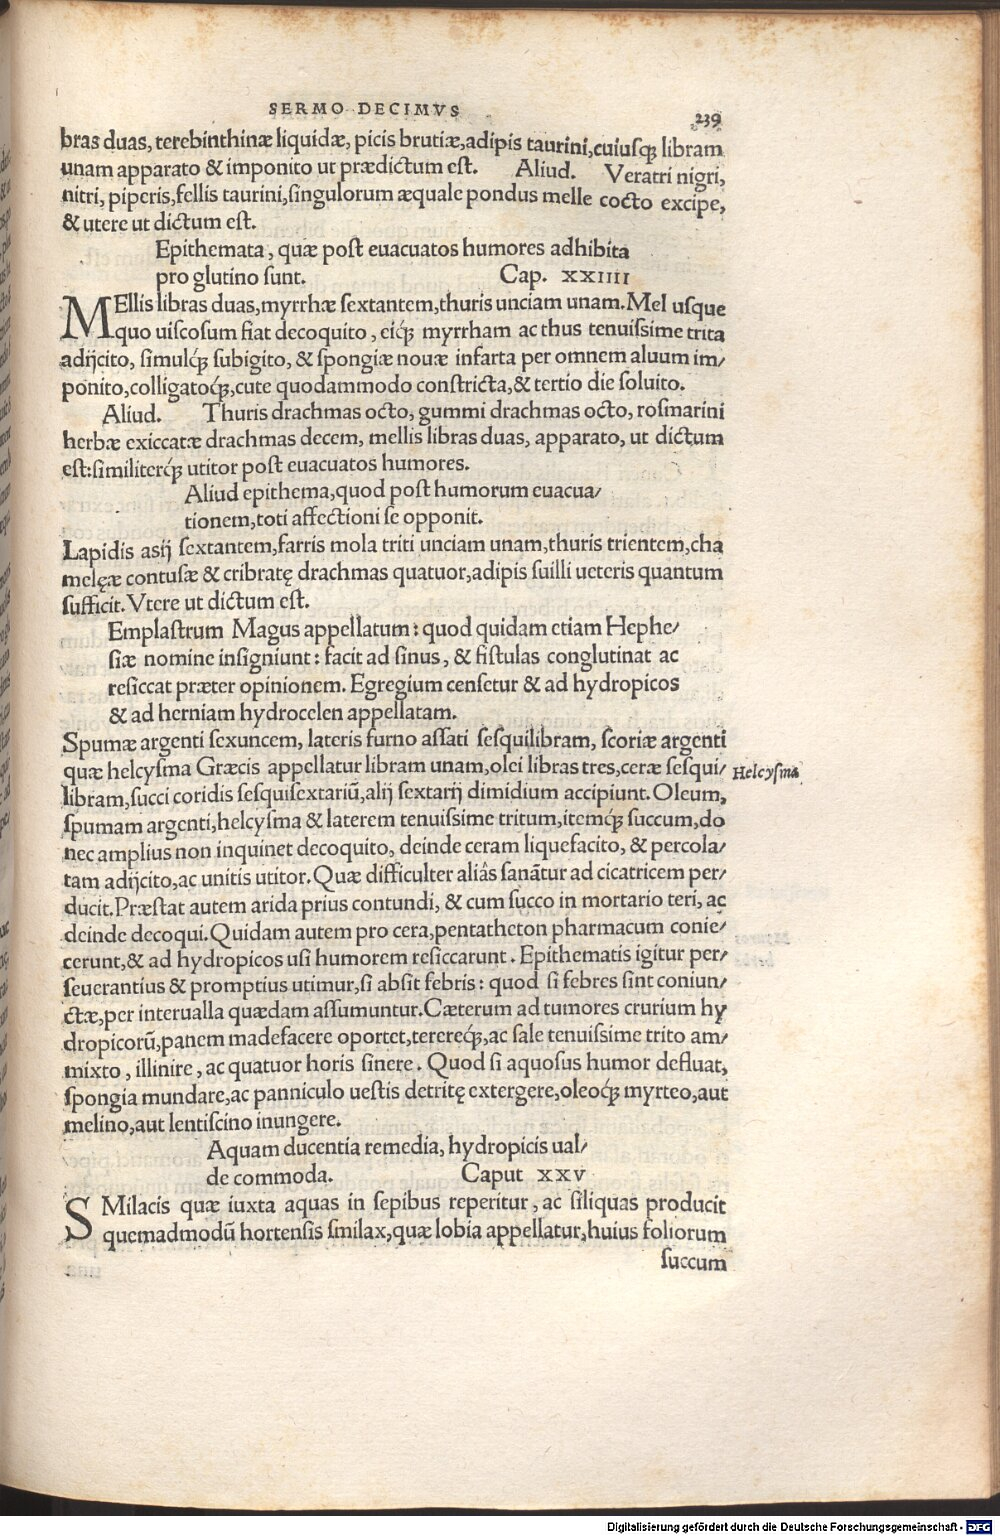 SERMO DECIMVS 239
bras duas, terebinthinæ liquidæ, picis brutiæ, adipis taurini, cuiusq; libram
unam apparato & imponito ut prædictum est. Aliud. Veratri nigri,
nitri, piperis, fellis taurini, singulorum æquale pondus melle cocto excipe,
& utere ut dictum est.
Epithemata, quæ post euacuatos humores adhibita
pro glutino sunt. Cap. XXIIII
MEllis libras duas, myrrhæ sextantem, thuris unciam unam. Mel usque
quo uiscosum fiat decoquito, eiq; myrrham ac thus tenuissime trita
adijcito, simulq; subigito, & spongiæ nouæ infarta per omnem aluum im/
ponito, colligatoq;, cute quodammodo constricta, & tertio die soluito.
Aliud. Thuris drachmas octo, gummi drachmas octo, rosmarini
herbæ exiccatæ drachmas decem, mellis libras duas, apparato, ut dictum
est: similiterq; utitor post euacuatos humores.
Aliud epithema, quod post humorum euacua/
tionem, toti affectioni se opponit.
Lapidis asij sextantem, farris mola triti unciam unam, thuris trientem, cha
melęæ contusæ & cribratę drachmas quatuor, adipis suilli ueteris quantum
sufficit. Vtere ut dictum est.
Emplastrum Magus appellatum: quod quidam etiam Hephe/
siæ nomine insigniunt: facit ad sinus, & fistulas conglutinat ac
resiccat præter opinionem. Egregium censetur & ad hydropicos
& ad herniam hydrocelen appellatam.
Spumæ argenti sexuncem, lateris furno assati sesquilibram, scoriæ argenti
quæ helcysma Græcis appellatur libram unam, olei libras tres, ceræ sesqui/
Helcysma
libram, succi coridis sesquisextariū, alij sextarij dimidium accipiunt. Oleum,
spumam argenti, helcysma & laterem tenuissime tritum, itemq; succum, do
nec amplius non inquinet decoquito, deinde ceram liquefacito, & percola/
tam adijcito, ac unitis utitor. Quæ difficulter aliâs sanātur ad cicatricem per/
ducit. Præstat autem arida prius contundi, & cum succo in mortario teri, ac
deinde decoqui. Quidam autem pro cera, pentatheton pharmacum conie/
cerunt, & ad hydropicos usi humorem resiccarunt. Epithematis igitur per/
seuerantius & promptius utimur, si absit febris: quod si febres sint coniun/
ctæ, per interualla quædam assumuntur. Cæterum ad tumores crurium hy
dropicorū, panem madefacere oportet, terereq;, ac sale tenuissime trito am/
mixto, illinire, ac quatuor horis sinere. Quod si aquosus humor defluat,
spongia mundare, ac panniculo uestis detritę extergere, oleoq; myrteo, aut
melino, aut lentiscino inungere.
Aquam ducentia remedia, hydropicis ual/
de commoda. Caput XXV
SMilacis quæ iuxta aquas in sepibus reperitur, ac siliquas producit
quemadmodū hortensis smilax, quæ lobia appellatur, huius foliorum
succum
Digitalisierung gefördert durch die Deutsche Forschungsgemeinschaft - DFG